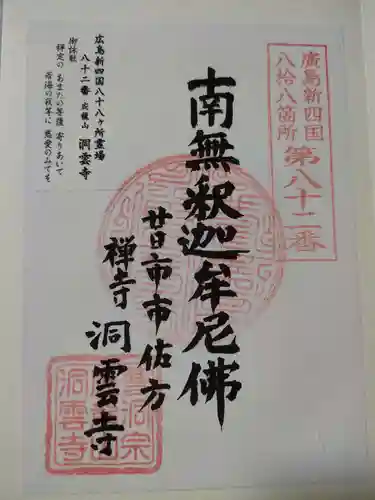 廣島新四国
八拾八箇所
第八十二番
南無釈迦牟尼佛
廿日市市佐方
禅寺 洞雲寺
広島新四国八十八ケ所霊場
八十二番 応龍山 洞雲寺
御詠歌
禅定の あまたの菩薩 寄りあいて
苦海の我等に 慈愛のみてを
曹洞宗
洞雲寺